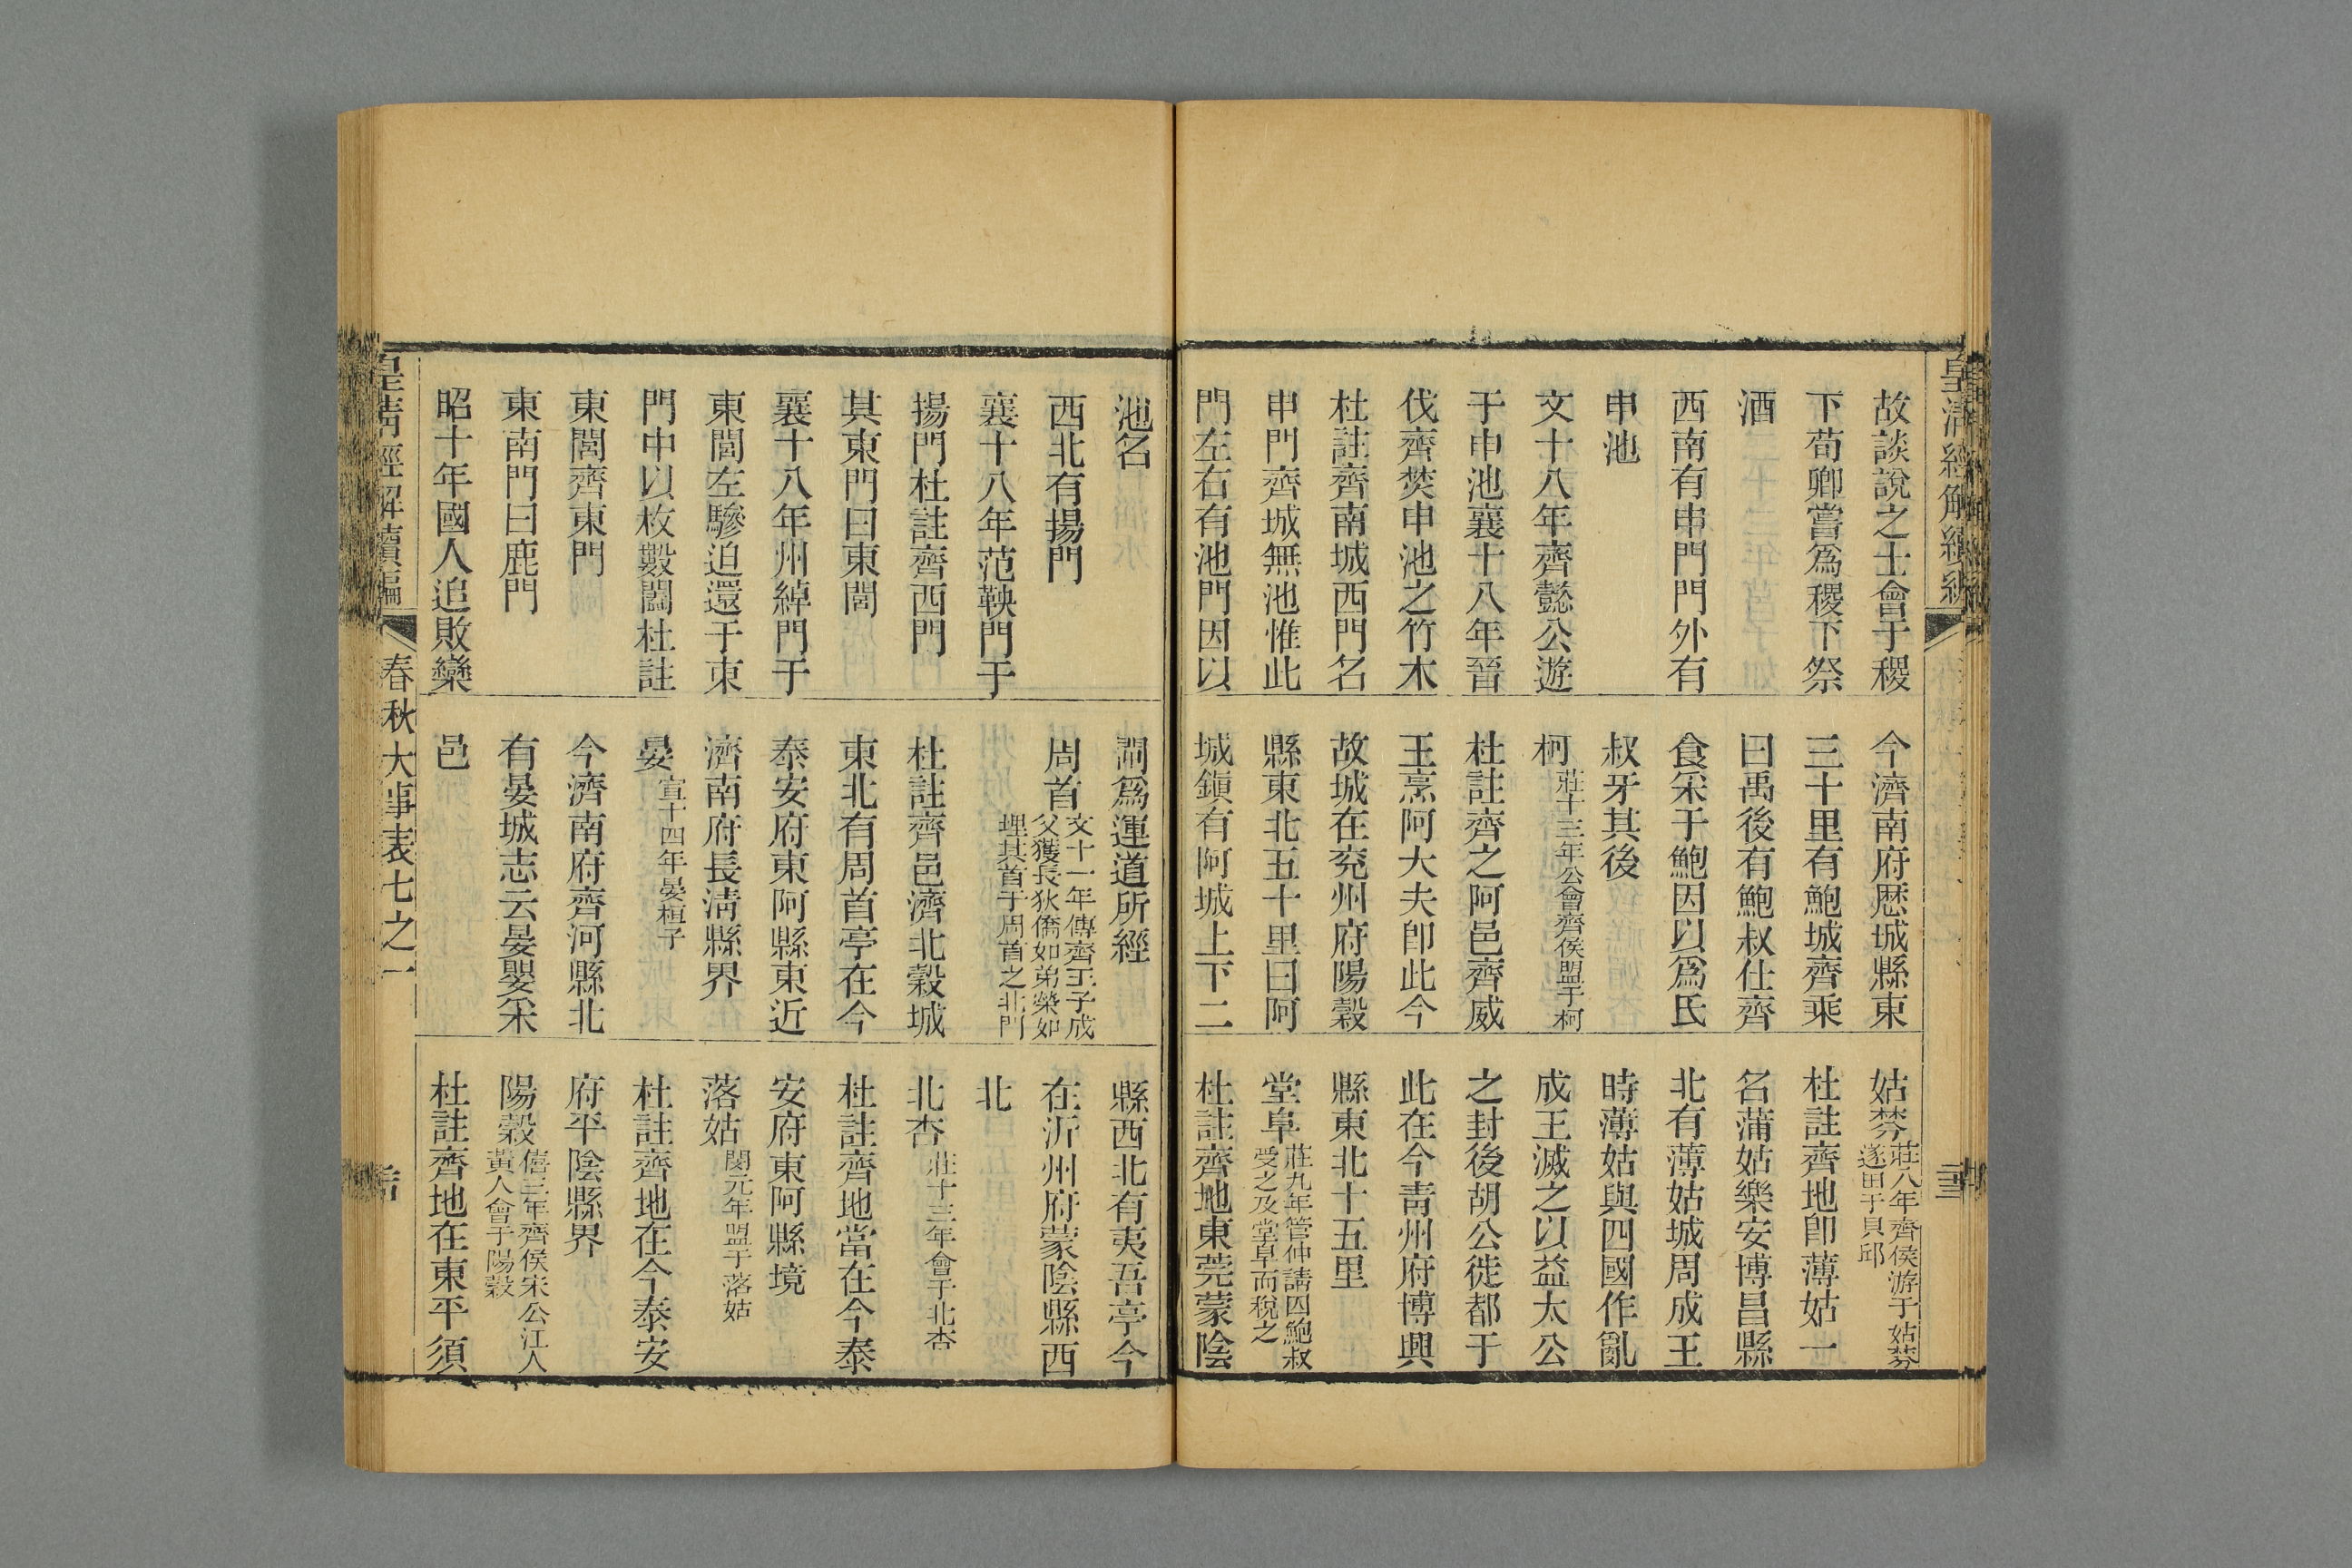 皇清經解續編
故談說之士會于稷
下荀卿嘗爲稷下祭
酒
西南有申門門外有
申池
文十八年齊懿公遊
于申池襄十八年晉
伐齊焚申池之竹木
杜註齊南城西門名
申門齊城無池惟此
門左右有池門因以
今濟南府歷城縣東
三十里有鮑城齊乘
曰禹後有鮑叔仕齊
食采于鮑因以爲氏
叔牙其後
柯莊十三年公會齊侯盟于柯
杜註齊之阿邑齊威
王烹阿大夫卽此今
故城在兗州府陽穀
縣東北五十里曰阿
城鎭有阿城上下二
姑棼莊八年齊侯游于姑棼
遂田于貝邱
杜註齊地卽薄姑一
名蒲姑樂安博昌縣
北有薄姑城周成王
時薄姑與四國作亂
成王滅之以益太公
之封後胡公徙都于
此在今靑州府博興
縣東北十五里
堂阜莊九年管仲請囚鮑叔
受之及堂阜而稅之
杜註齊地東莞蒙陰
池名
西北有揚門
襄十八年范鞅門于
揚門杜註齊西門
其東門曰東閭
襄十八年州綽門于
東閭左驂迫還于東
門中以枚數闔杜註
東閭齊東門
東南門曰鹿門
昭十年國人追敗欒
閘爲運道所經
周首文十一年傳齊王子成
父獲長狄僑如弟榮如
埋其首于周首之北門
杜註齊邑濟北穀城
東北有周首亭在今
泰安府東阿縣東近
濟南府長淸縣界
晏宣十四年晏桓子
今濟南府齊河縣北
有晏城志云晏嬰采
邑
縣西北有夷吾亭今
在沂州府蒙陰縣西
北
北杏莊十三年會于北杏
杜註齊地當在今泰
安府東阿縣境
落姑閔元年盟于落姑
杜註齊地在今泰安
府平陰縣界
陽穀僖三年齊侯宋公江人
黃人會于陽穀
杜註齊地在東平須
皇淸經解續編
春秋大事表七之一